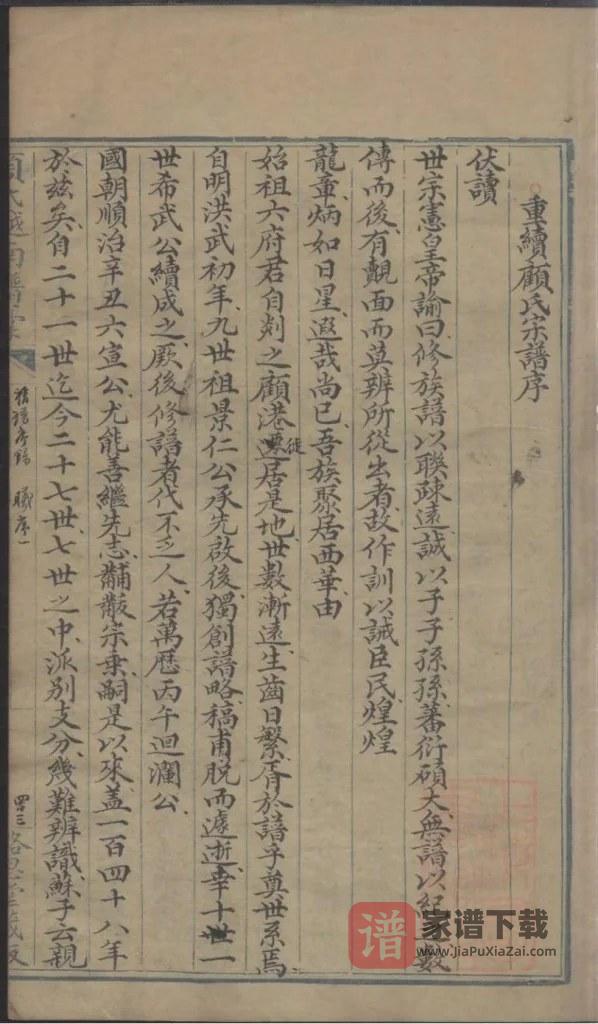 重續顧氏宗譜序
伏讀
世宗憲皇帝諭曰修族譜以聯疎遠誠以子子孫孫蕃衍碩大無譜以紀其數
傳而後有覿面而莫辨所從出者故作訓以誡臣民煌煌
龍章炳如日星遐哉尚已吾族聚居西華由
始祖六府君自剡之顧港遷徙居是地世數漸遠生齒日繁胥於譜乎奠世系焉
自明洪武初年九世祖景仁公承先啟後獨創譜略稿甫脫而遽逝幸十世一
世希武公續成之厥後修譜者代不乏人若萬歷丙午迴瀾公
國朝順治辛丑六宣公尤能善繼先志黼黻宗乘嗣是以來蓋一百四十八年
於茲矣自二十一世迄今二十七世七世之中派別支分幾難辨識蘇子云親
序一
四三
藏板
谱
家谱下载
www.JiaPuXiaZai.com